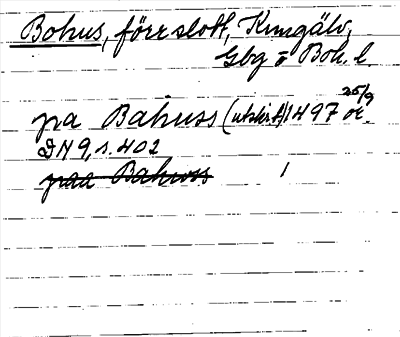 Bohus, förr slott, Kungälv,
Gbg o Boh. l.
pa Bahuss (utskrift) 1497 25/9 or.
DN 9, s. 402
paa Bahuss